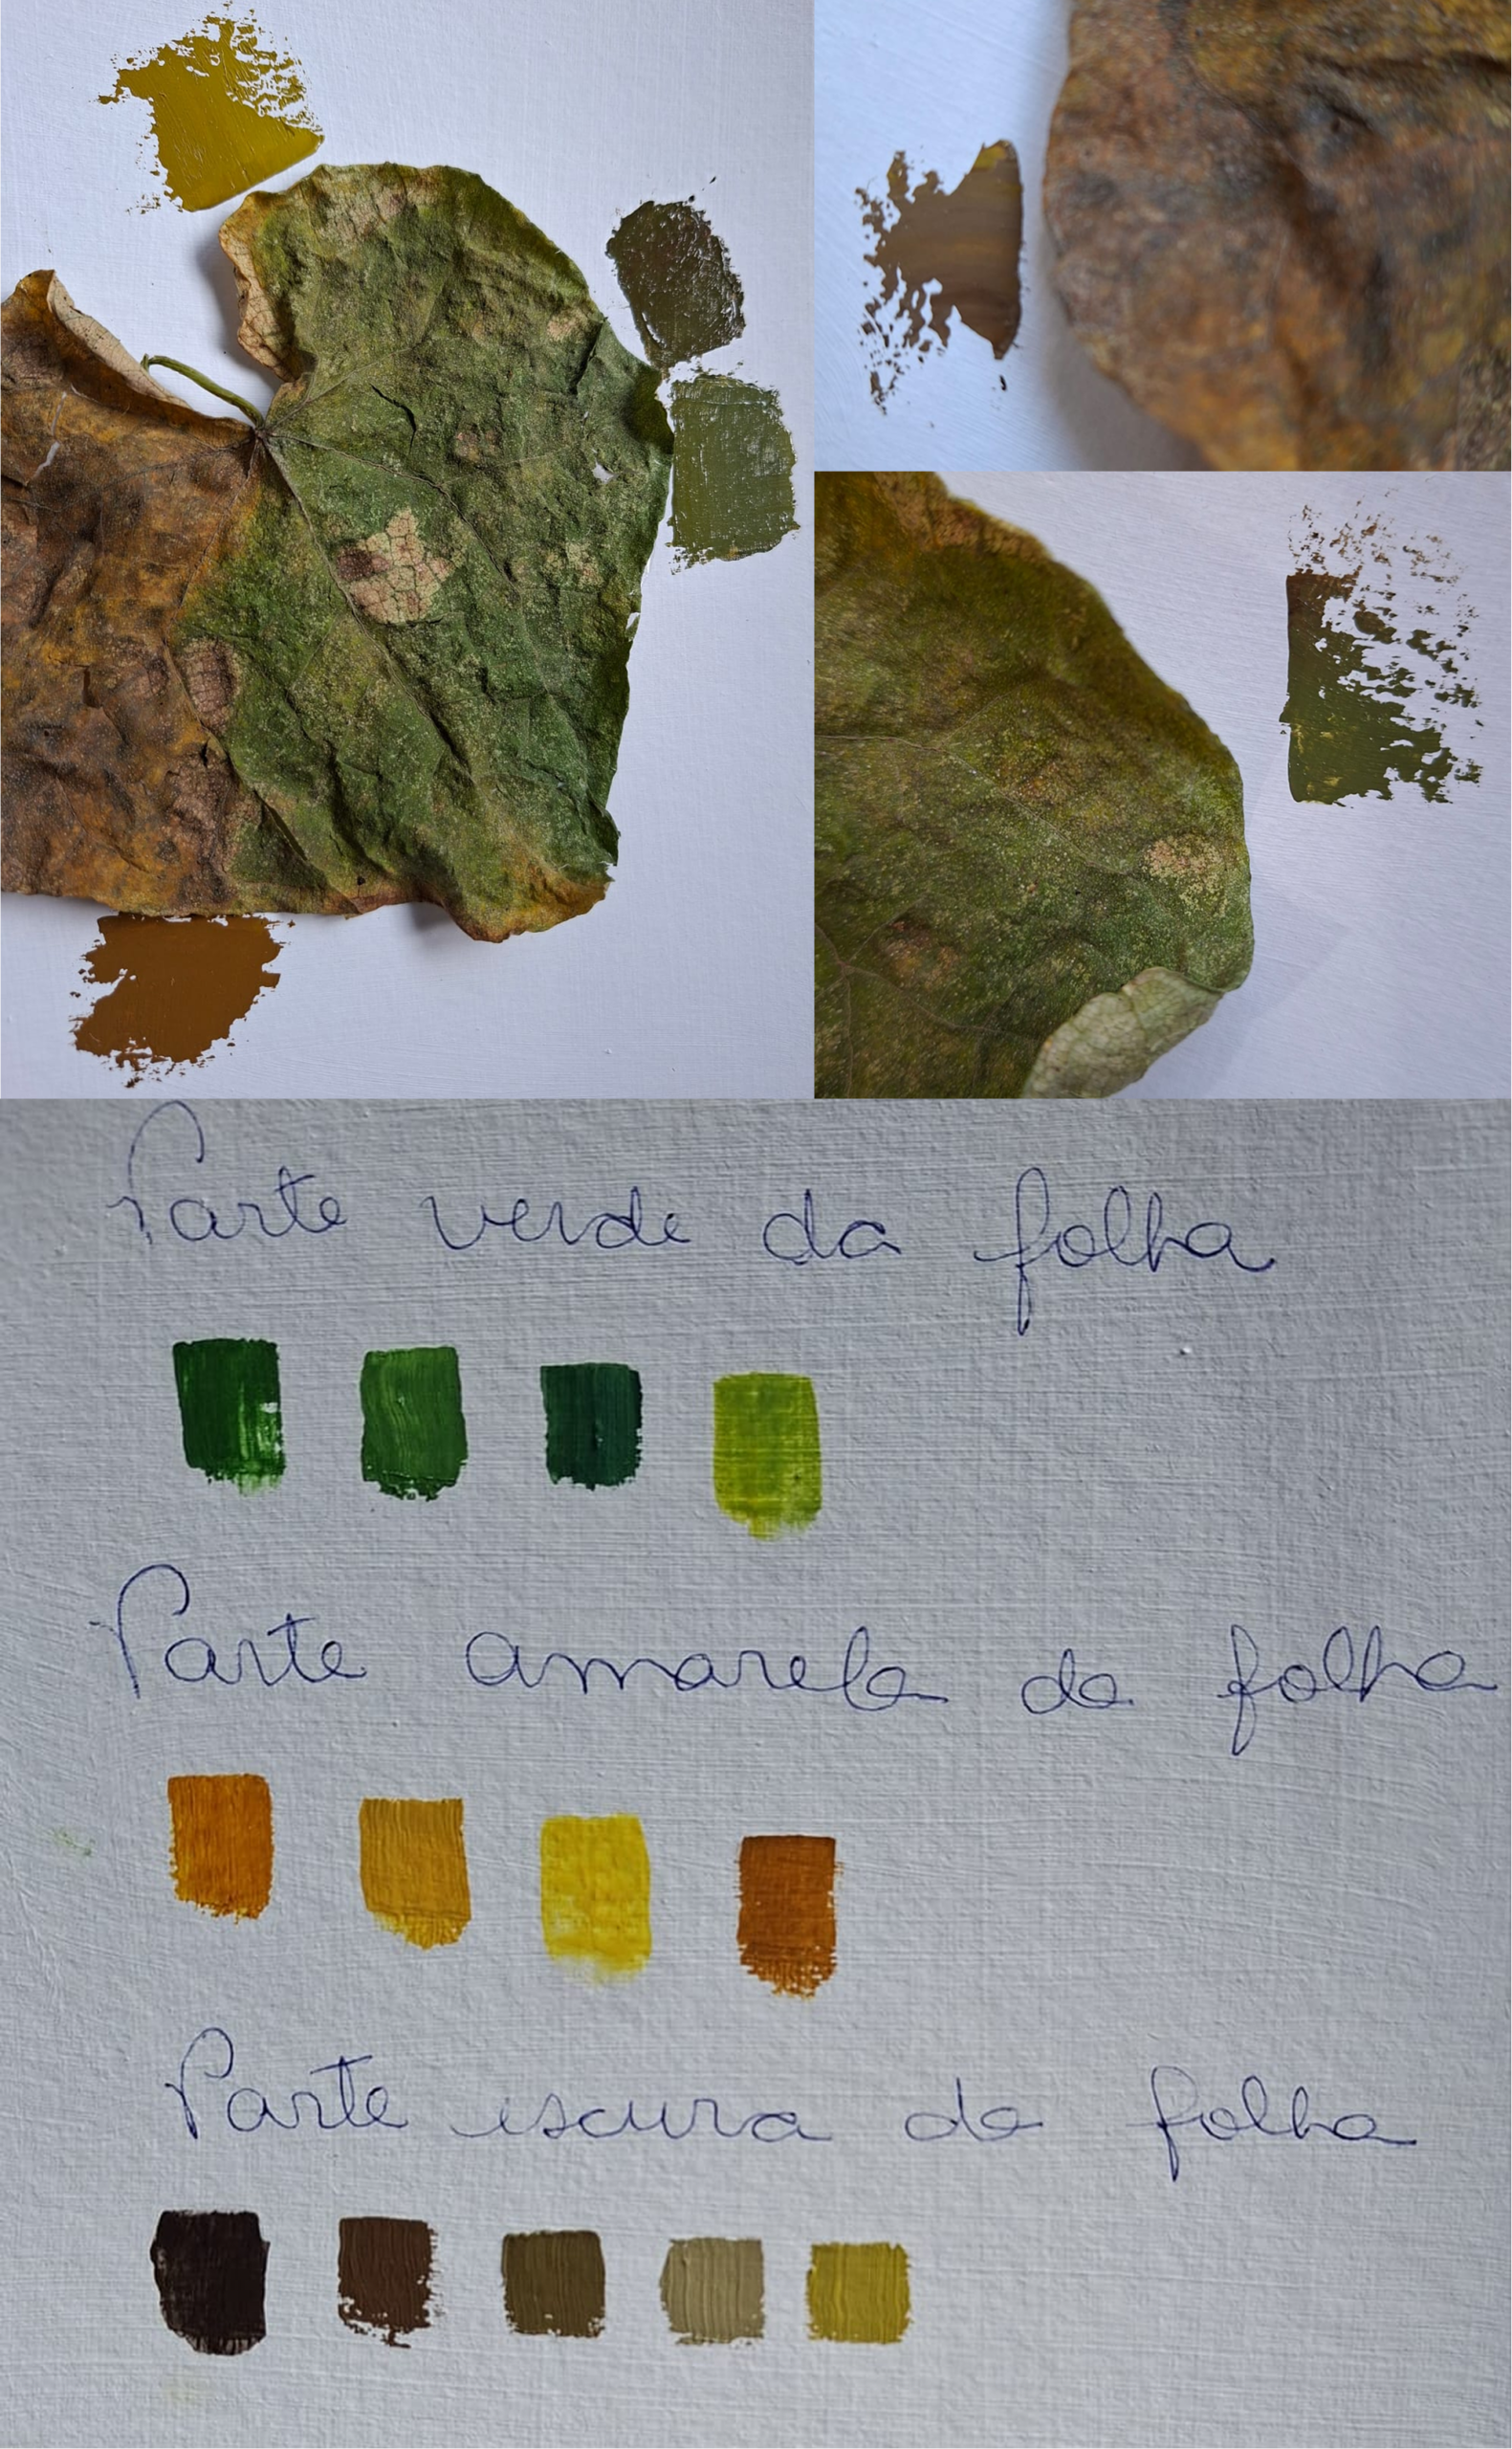 Parte verde da folha
Parte amarela da folha
Parte escura da folha